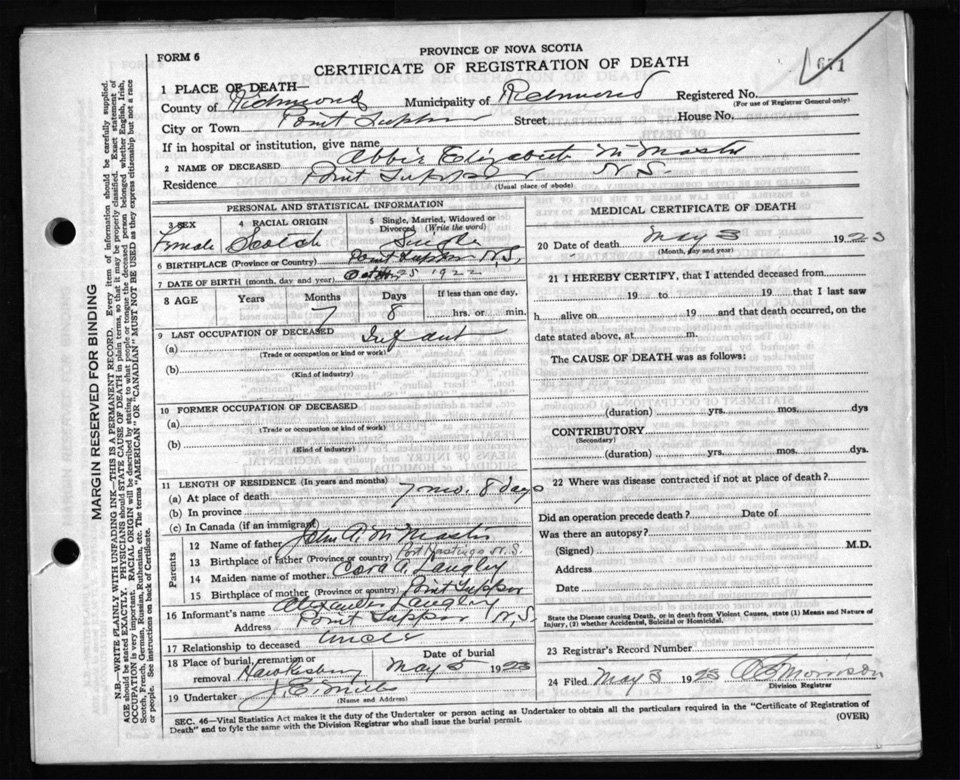 PROVINCE OF NOVA SCOTIA
FORM 6
CERTIFICATE OF REGISTRATION OF DEATH
1 PLACE OF DEATH—
County of Richmond Municipality of Richmond Registered No.
(For use of Registrar General only)
City or Town Point Tupper Street House No.
If in hospital or institution, give name
2 NAME OF DECEASED Abbie Elizabeth McMaster
Residence Point Tupper N.S.
(Usual place of abode)
PERSONAL AND STATISTICAL INFORMATION
3 SEX 4 RACIAL ORIGIN 5 Single, Married, Widowed or Divorced (Write the word)
Female Scotch Single
6 BIRTHPLACE (Province or Country) Point Tupper N.S.
7 DATE OF BIRTH (month, day and year) 25 1922
8 AGE Years Months Days If less than one day,
7 8 hrs. or min.
9 LAST OCCUPATION OF DECEASED
(a) Infant
(Trade or occupation or kind or work)
(b)
(Kind of industry)
10 FORMER OCCUPATION OF DECEASED
(a)
(Trade or occupation or kind or work)
(b)
(Kind of industry)
11 LENGTH OF RESIDENCE (In years and months)
(a) At place of death 7 mo. 8 days
(b) In province
(c) In Canada (if an immigrant)
Parents
12 Name of father John A. McMaster
13 Birthplace of father (Province or country) Port Hastings N.S.
14 Maiden name of mother Cora A. Langley
15 Birthplace of mother (Province or country) Point Tupper
16 Informant's name Alexander Langley
Address Point Tupper N.S.
17 Relationship to deceased Uncle
18 Place of burial, cremation or removal Hawkesbury Date of burial May 5 1923
19 Undertaker
(Name and Address)
MEDICAL CERTIFICATE OF DEATH
20 Date of death May 3 1923
(Month, day and year)
21 I HEREBY CERTIFY, that I attended deceased from
19 to 19 that I last saw
h alive on 19 and that death occurred, on the
date stated above, at m.
The CAUSE OF DEATH was as follows:
(duration) yrs. mos. dys
CONTRIBUTORY
(Secondary)
(duration) yrs. mos. dys.
22 Where was disease contracted if not at place of death?
Did an operation precede death? Date of
Was there an autopsy?
(Signed) M.D.
Address
Date
State the Disease causing Death, or in death from Violent Causes, state (1) Means and Nature of Injury, (2) whether Accidental, Suicidal or Homicidal.
23 Registrar's Record Number
24 Filed May 3 1923 Morrison
Division Registrar
SEC. 46—Vital Statistics Act makes it the duty of the Undertaker or person acting as Undertaker to obtain all the particulars required in the "Certificate of Registration of
Death" and to fyle the same with the Division Registrar who shall issue the burial permit.
(OVER)
MARGIN RESERVED FOR BINDING
N.B.—WRITE PLAINLY WITH UNFADING INK—THIS IS A PERMANENT RECORD. Every item of information should be carefully supplied.
AGE should be stated EXACTLY. PHYSICIANS should STATE CAUSE OF DEATH in plain terms, so that it may be properly classified. Exact statement of
OCCUPATION is very important. RACIAL ORIGIN will be described by stating to what people or tongue the deceased person belonged whether English, Irish,
Scotch, French, German, Russian, Ruthenian, etc. The terms "AMERICAN" OR "CANADIAN" MUST NOT BE USED as they express citizenship but not a race
or people. See instructions on back of Certificate.